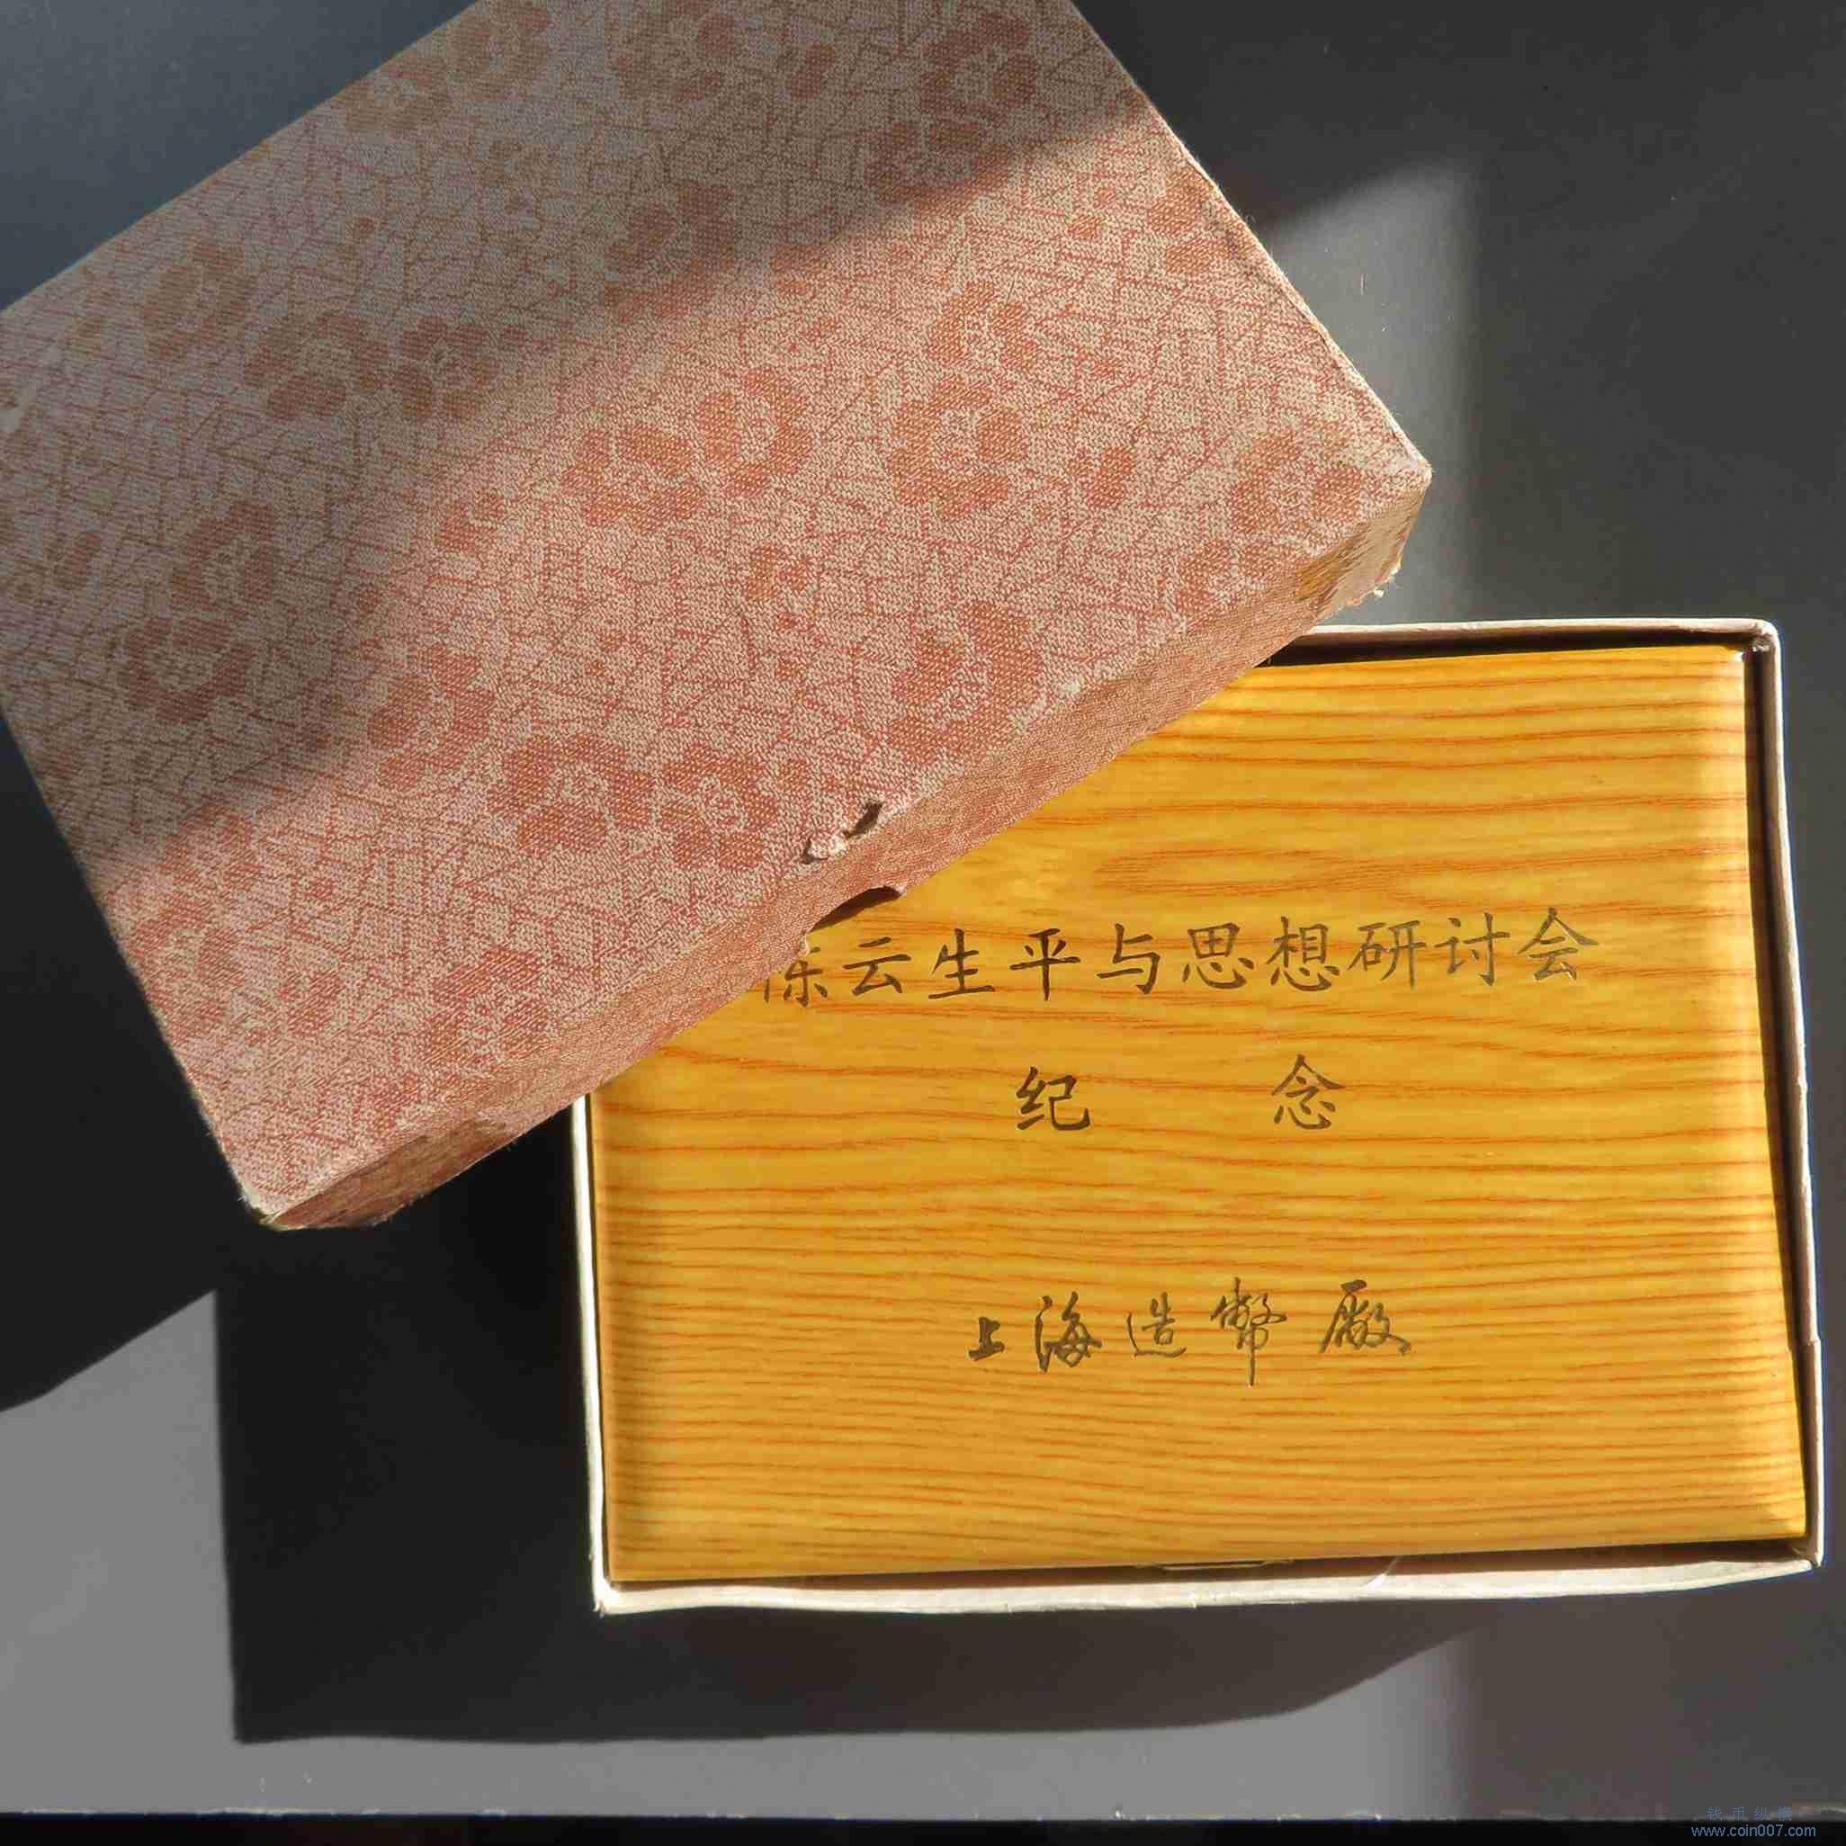 陈云生平与思想研讨会
纪 念
上海造幣廠
www.coin007.com